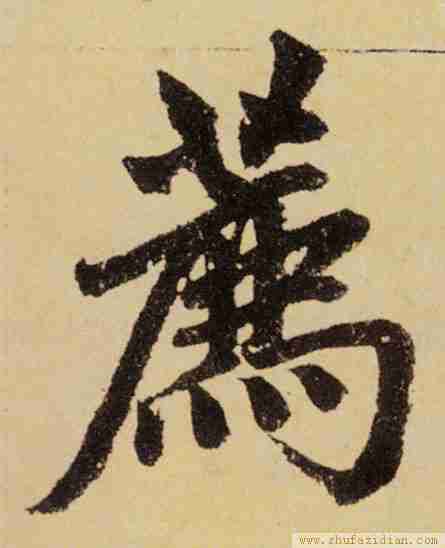 薦
www.zhufazidian.com